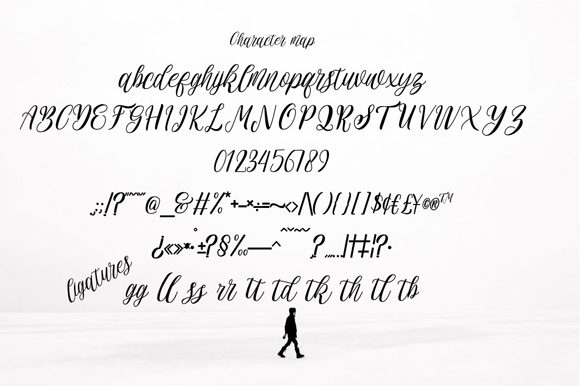 Character map
abcdefghijklmnopqrstuvwxyz
ABCDEFGHIJKLMNOPQRSTUVWXYZ
0123456789
.,:;!?"˜@_&#%*+-×÷=~<>/\(){}[]$¢€£¥©®™
¿«»*·°±?§‰—^ ?,,...|†‡¡?·
ligatures
gg ll ss rr tt td tk th tl tb